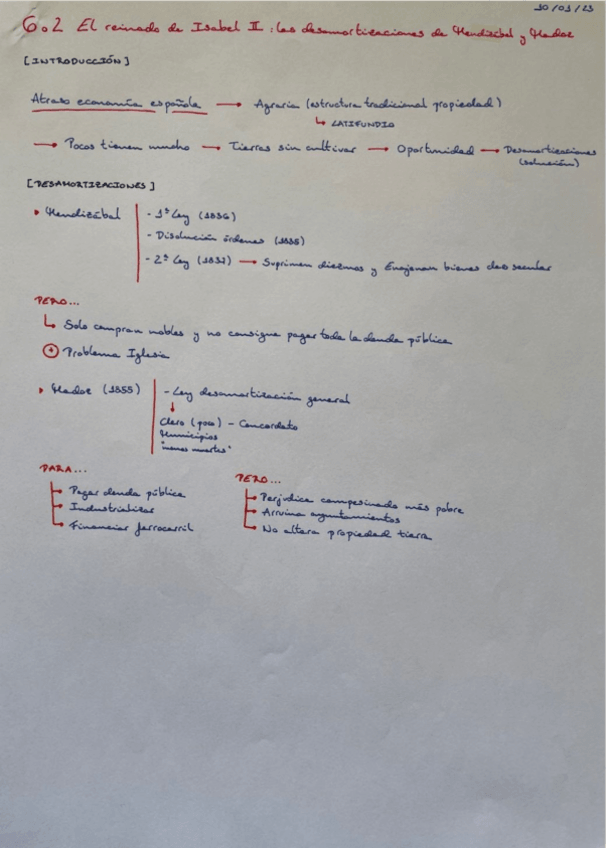 10/01/23
6.2 El reinado de Isabel II: las desamortizaciones de Mendizábal y Madoz
[INTRODUCCIÓN]
Atraso economía española → Agraria (estructura tradicional propiedad)
↳ LATIFUNDIO
→ Pocos tienen mucho → Tierras sin cultivar → Oportunidad → Desamortizaciones
(solución)
[DESAMORTIZACIONES]
• Mendizábal
- 1ª Ley (1836)
- Disolución órdenes (1835)
- 2ª Ley (1837) → Suprimen diezmos y Enajenan bienes clero secular
PERO...
↳ Solo compran nobles y no consigue pagar toda la deuda pública
+ Problema Iglesia
• Madoz (1855)
- Ley desamortización general
↓
Clero (poco) - Concordato
Municipios
"manos muertas"
PARA...
→ Pagar deuda pública
→ Industrializar
→ Financiar ferrocarril
PERO...
→ Perjudica campesinado más pobre
→ Arruina ayuntamientos
→ No altera propiedad tierra